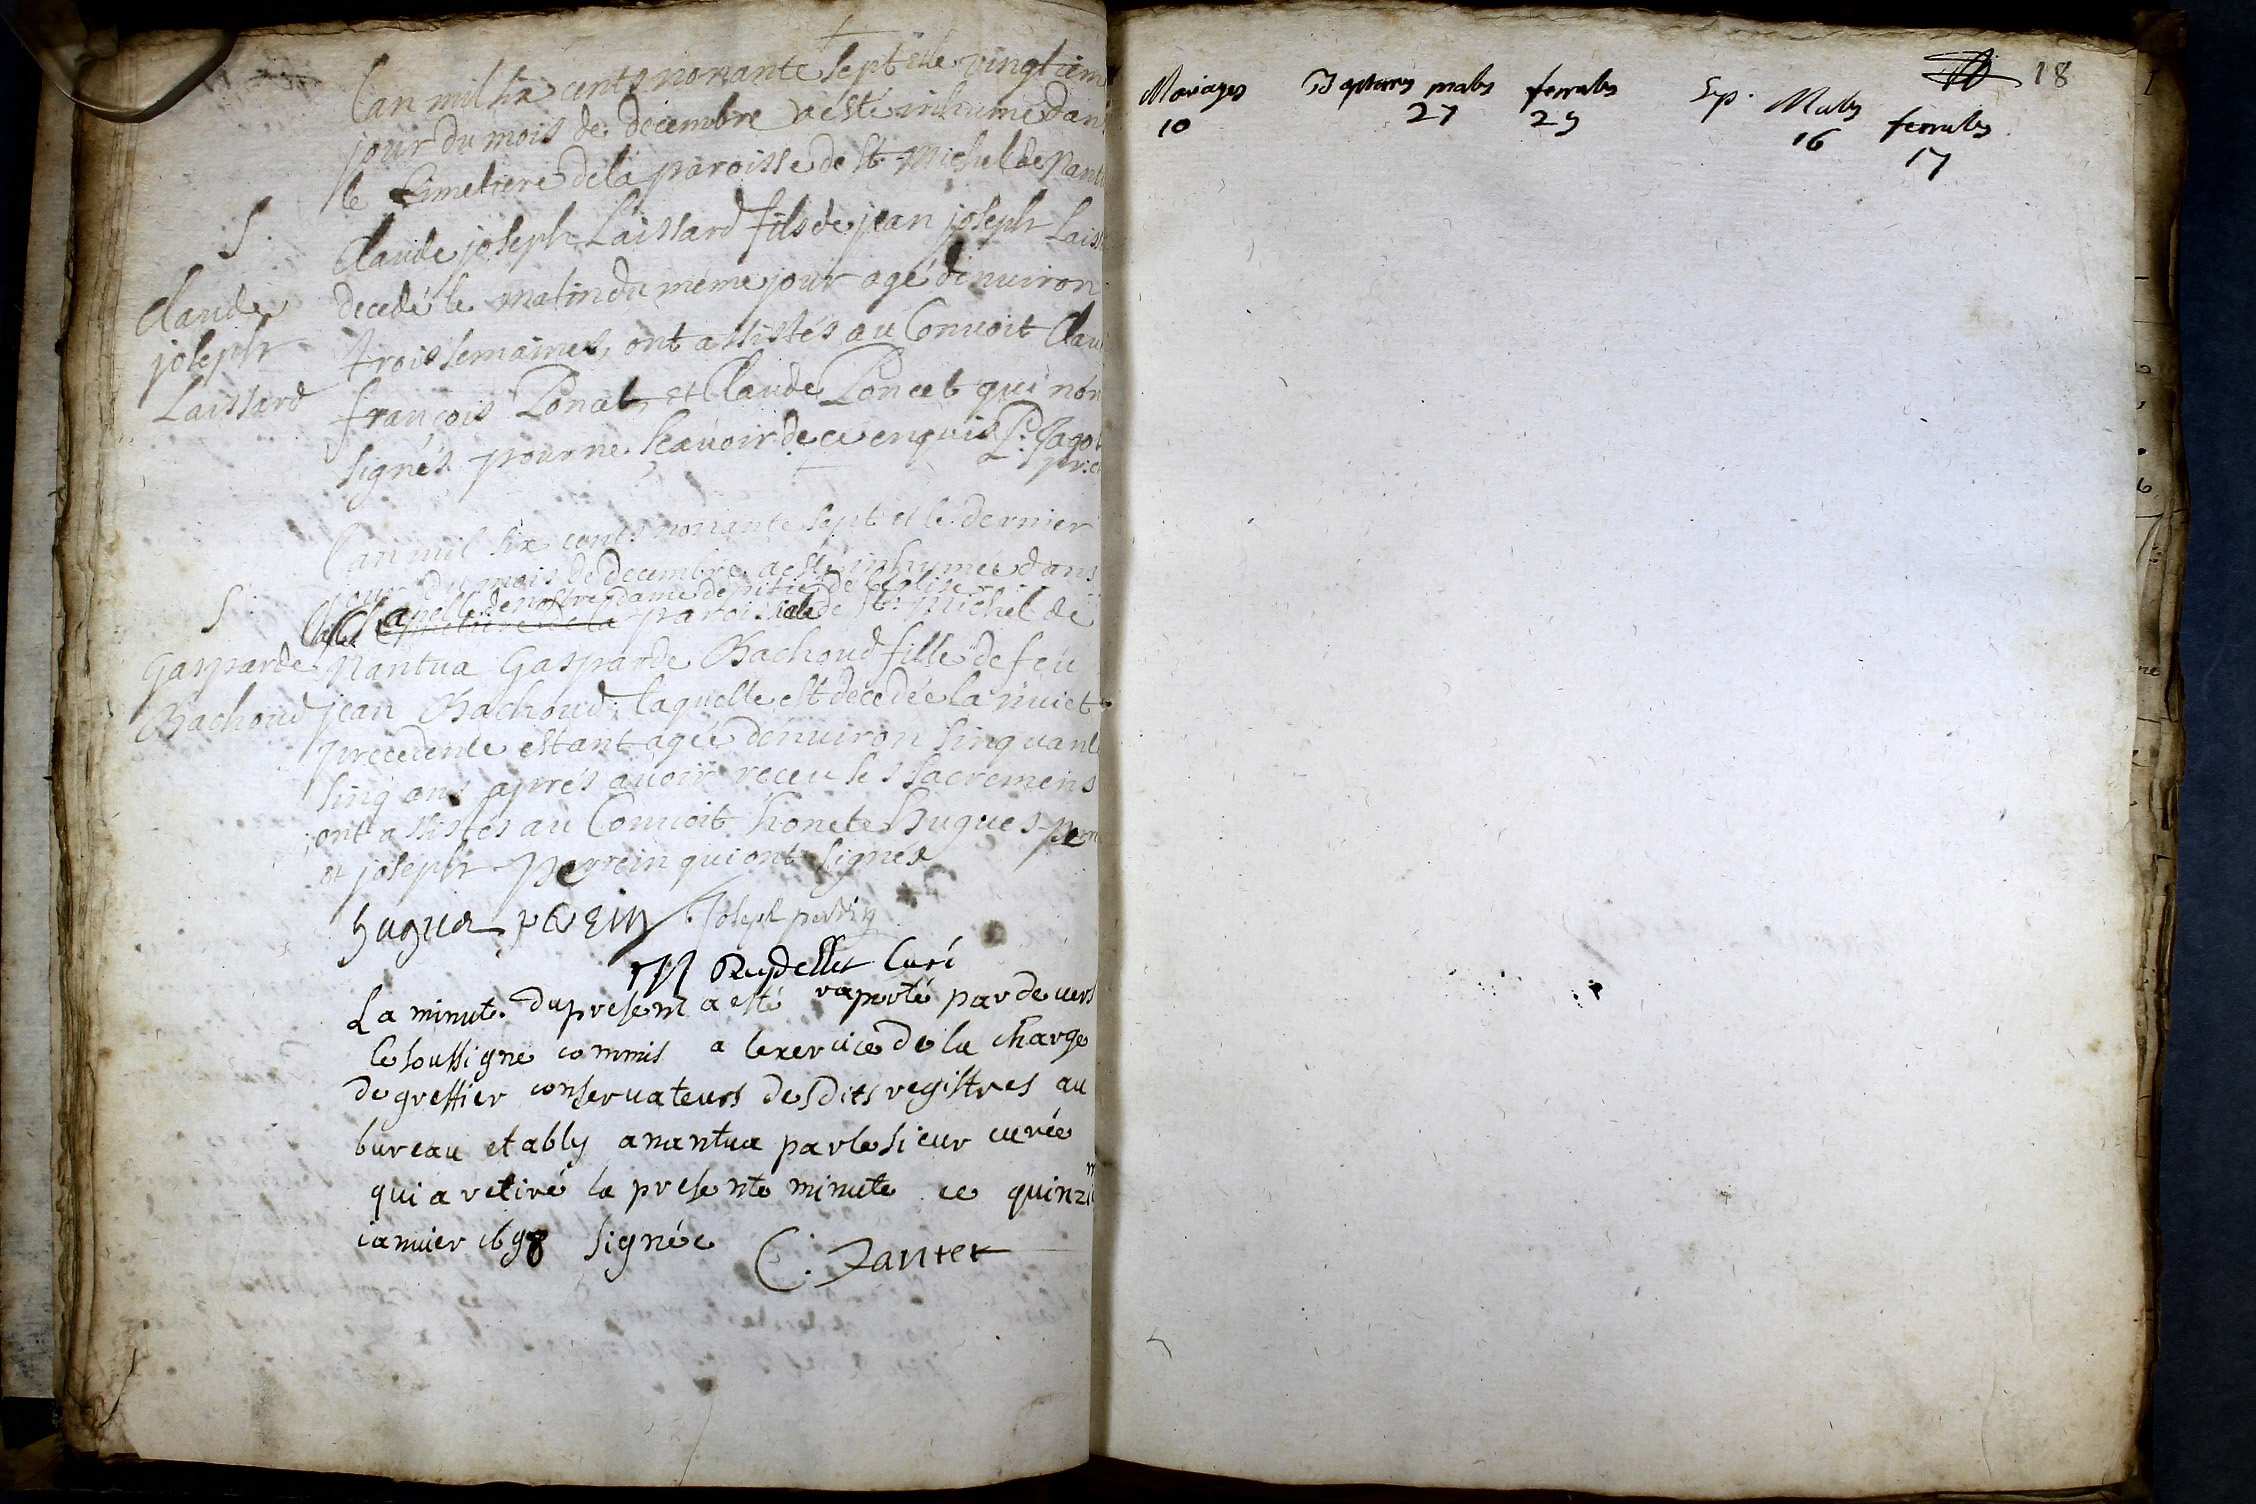 Lan mil six cents nonante sept et le vingtiem
jour du mois de decembre a esté inhumé dans
le Cimetiere de la paroisse de St Michel de Nantu
S.
Claude joseph Laissard fils de jean joseph Laiss
Claude
decedé le matin du méme jour agé d'enuiron
joseph
trois semaines, ont assistés au Conuoit Clau
Laissard
françois Poncet et Claude Poncet qui nón
signés pour ne sçauoir de ce enquis P. Jagot
pr.
Lan mil six cents nonante sept et le dernier
jour du mois de decembre a esté inhumée dans
la Chapelle de nostre dame de pitié de l'eglise
S.
paroissiale de St Michel de
Gasparde
Nantua Gasparde Bachoud fille de feu
Bachoud
jean Bachoud, laquelle est decedée la nuict
precedente estant agée d'enuiron sinquante
sinq ans aprés auoir receu les sacremens
ont assistés au Conuoit honete Hugues Perr
et joseph Perrein qui ont signés
hugue perein Joseph perrin
M Reydellet Curé
La minute du present a esté raporté par deuers
le soussigné commis a lexercice de la charge
de greffier conseruateurs desdits registres au
bureau etably a nantua par le sieur curée
qui a retiré la presente minute ce quinzi
ianuier 1698 signée C. Jantet
18
Mariages Baptemes males femeles Sep. Males femeles
10 27 25 16 17